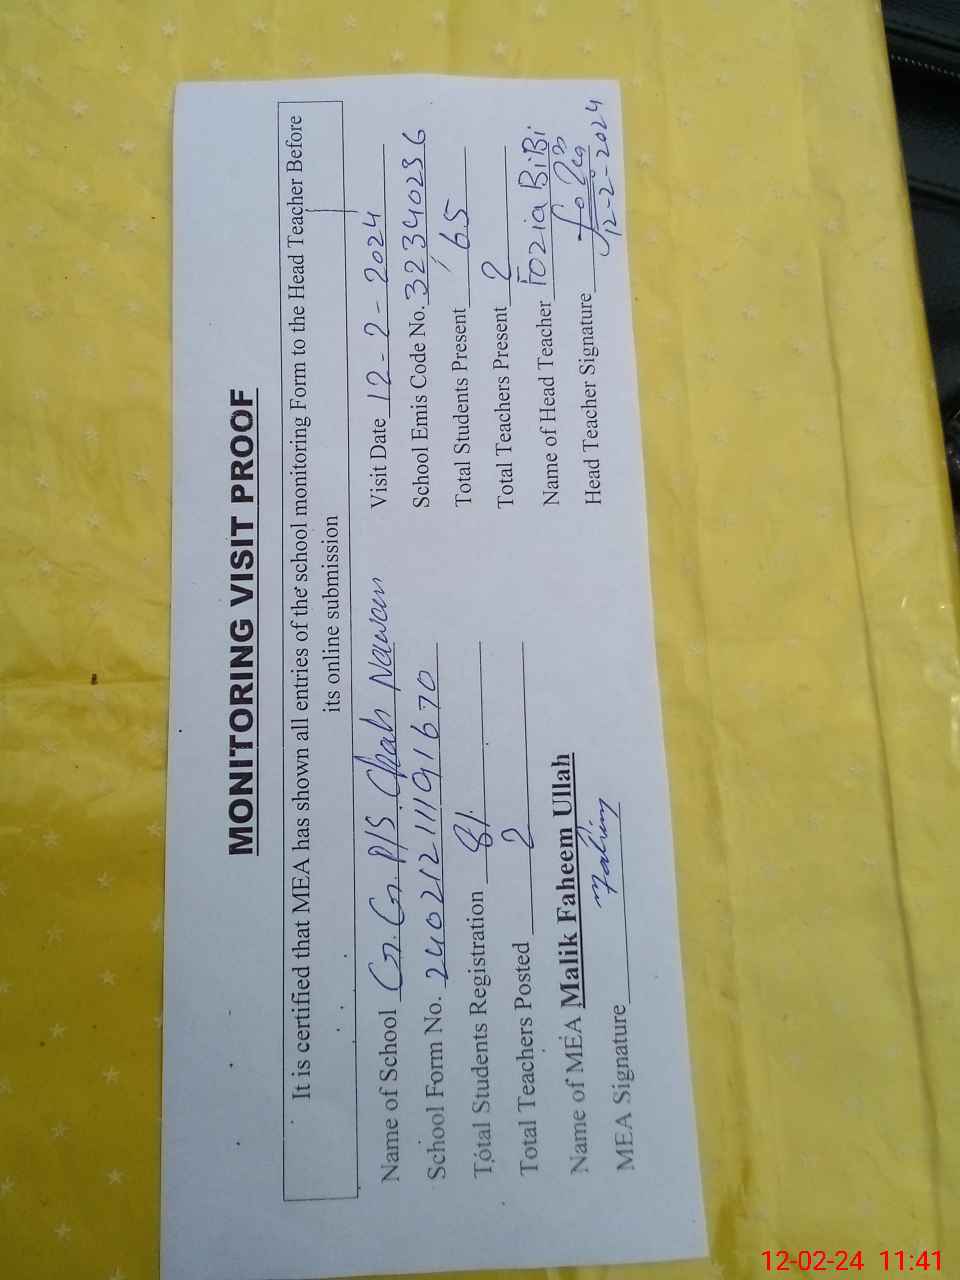 MONITORING VISIT PROOF
It is certified that MEA has shown all entries of the school monitoring Form to the Head Teacher Before
its online submission
Name of School G. G. P/S. Chah Nawan
Visit Date 12-2-2024
School Form No. 2402121119 1670
School Emis Code No. 32340236
Total Students Registration 81
Total Students Present 65
Total Teachers Posted 2
Total Teachers Present 2
Name of MEA Malik Faheem Ullah
Name of Head Teacher Fozia BiBi
MEA Signature Fahim
Head Teacher Signature
12-2-2024
12-02-24 11:41